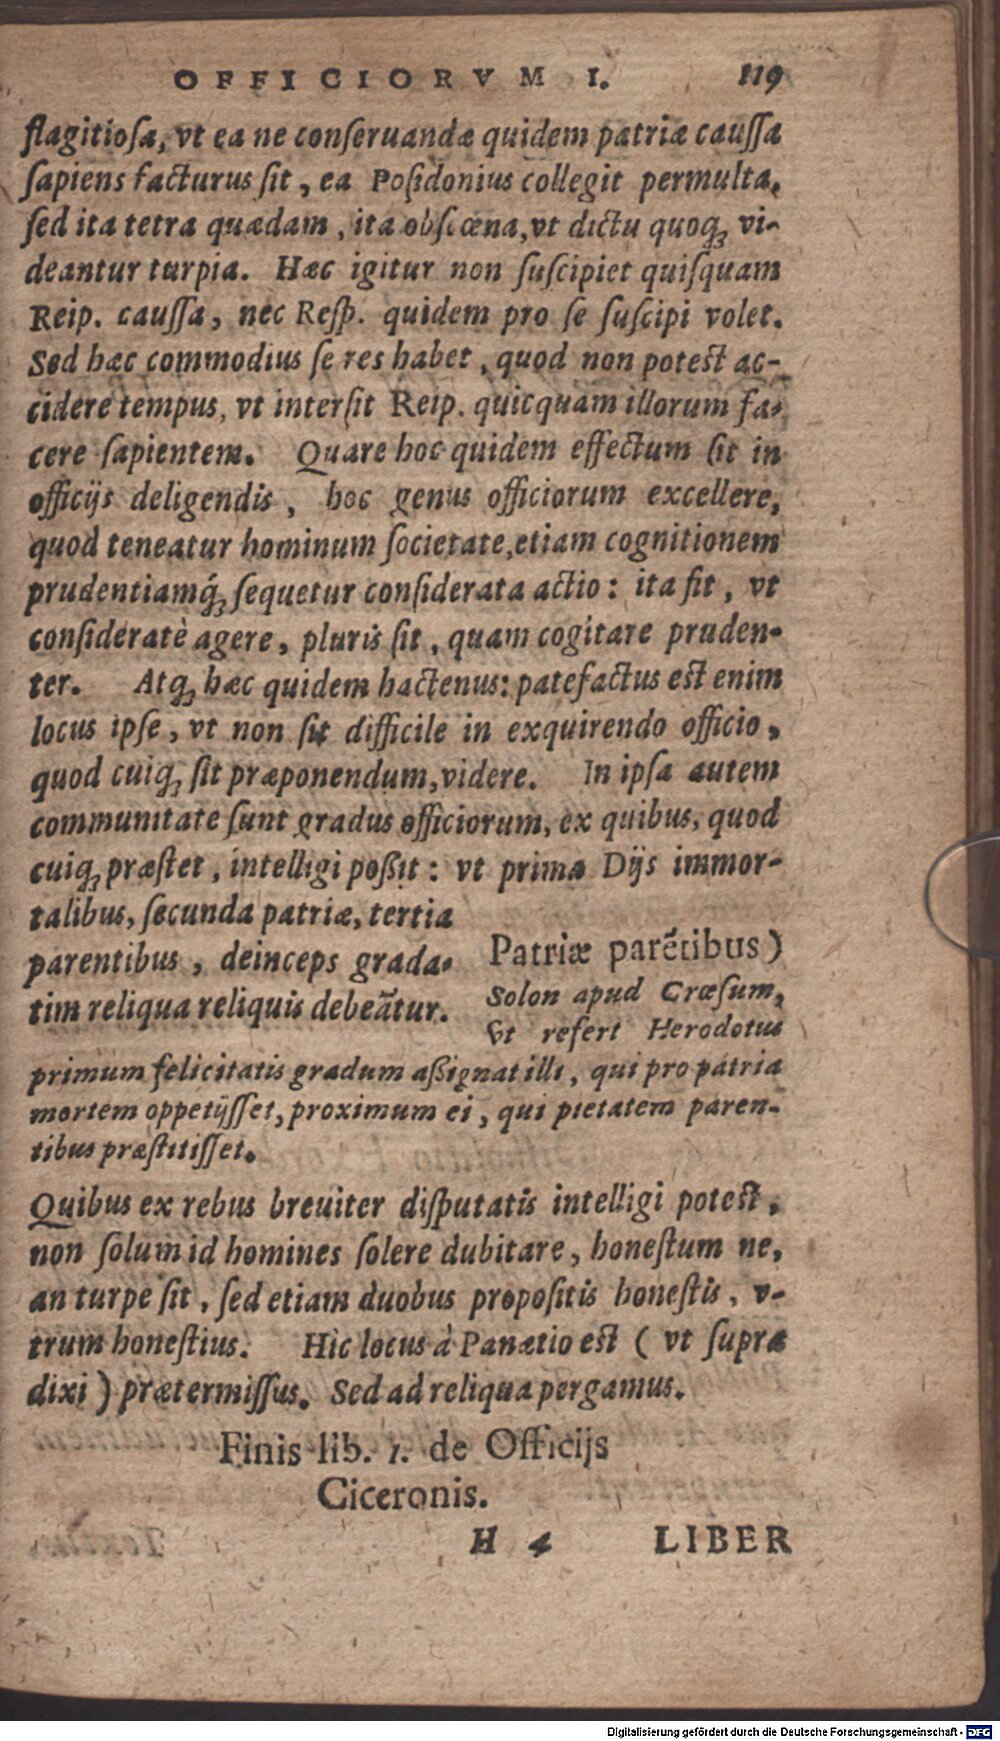 OFFICIORVM I. 119
flagitiosa, vt ea ne conseruandæ quidem patriæ caussa
sapiens facturus sit, ea Posidonius collegit permulta,
sed ita tetra quædam, ita obscœna, vt dictu quoq́; vi-
deantur turpia. Hæc igitur non suscipiet quisquam
Reip. caussa, nec Resp. quidem pro se suscipi volet.
Sed hæc commodius se res habet, quod non potest ac-
cidere tempus, vt intersit Reip. quicquam illorum fa-
cere sapientem. Quare hoc quidem effectum sit in
officijs deligendis, hoc genus officiorum excellere,
quod teneatur hominum societate, etiam cognitionem
prudentiamq́; sequetur considerata actio: ita fit, vt
consideratè agere, pluris sit, quam cogitare pruden-
ter. Atq́; hæc quidem hactenus: patefactus est enim
locus ipse, vt non sit difficile in exquirendo officio,
quod cuiq́; sit præponendum, videre. In ipsa autem
communitate sunt gradus officiorum, ex quibus, quod
cuiq́; præstet, intelligi poßit: vt prima Dijs immor-
talibus, secunda patriæ, tertia
parentibus, deinceps grada-
tim reliqua reliquis debeātur.
Patriæ parētibus)
Solon apud Crœsum,
vt refert Herodotus
primum felicitatis gradum aßignat illi, qui pro patria
mortem oppetijsset, proximum ei, qui pietatem paren-
tibus præstitisset.
Quibus ex rebus breuiter disputatis intelligi potest,
non solum id homines solere dubitare, honestum ne,
an turpe sit, sed etiam duobus propositis honestis, v-
trum honestius. Hic locus à Panætio est (vt supra
dixi) prætermissus. Sed ad reliqua pergamus.
Finis lib. 1. de Officijs
Ciceronis.
H 4 LIBER
Digitalisierung gefördert durch die Deutsche Forschungsgemeinschaft - DFG